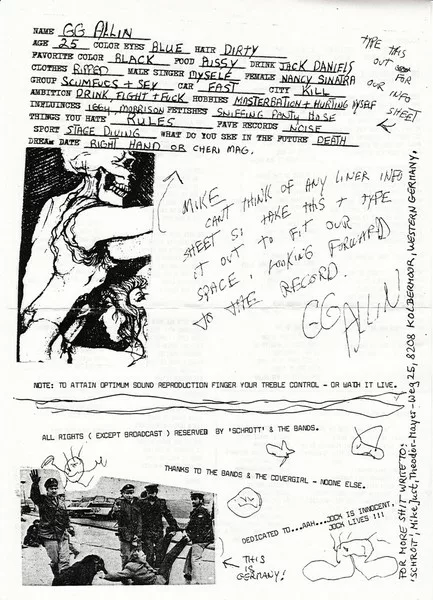 NAME GG ALLIN
AGE 25 COLOR EYES BLUE HAIR DIRTY
FAVORITE COLOR BLACK FOOD PUSSY DRINK JACK DANIELS
CLOTHES RIPPED MALE SINGER MYSELF FEMALE NANCY SINATRA
GROUP SCUMFUCS + SEY CAR FAST CITY KILL
AMBITION DRINK, FIGHT + FUCK HOBBIES MASTERBATION + HURTING MYSELF
INFLUINCES IGGY, MORRISON FETISHES SNIFFING PANTY HOSE
THINGS YOU HATE RULES FAVE RECORDS NOISE
SPORT STAGE DIVING WHAT DO YOU SEE IN THE FUTURE DEATH
DREAM DATE RIGHT HAND OR CHERI MAG.
TYPE THIS
OUT FOR
OUR INFO
SHEET
MIKE
CANT THINK OF ANY LINER INFO
SHEET SO TAKE THIS + TYPE
IT OUT TO FIT OUR
SPACE. LOOKING FORWARD
TO THE RECORD.
GG ALLIN
NOTE: TO ATTAIN OPTIMUM SOUND REPRODUCTION FINGER YOUR TREBLE CONTROL - OR WATCH IT LIVE.
ALL RIGHTS ( EXCEPT BROADCAST ) RESERVED BY 'SCHROTT' & THE BANDS.
THANKS TO THE BANDS & THE COVERGIRL - NOONE ELSE.
DEDICATED TO...AAH...JOCK IS INNOCENT.
JOCK LIVES !!!
THIS
IS
GERMANY!
FOR MORE SHIT WRITE TO:
'SCHROTT', Mike Just, Theodor-Mayer-Weg 25, 8208 KOLBERMOOR, WESTERN GERMANY.